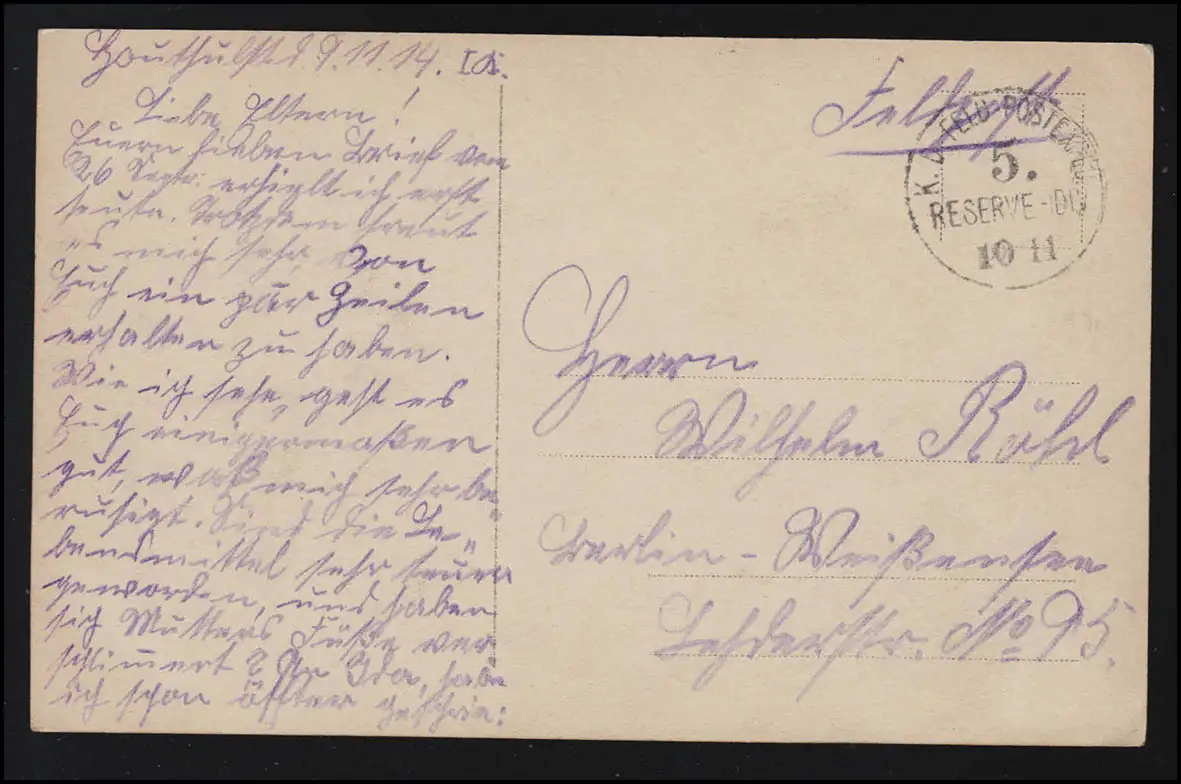 Houthulst d. 9.11.14.
Liebe Eltern!
Euern lieben Brief vom
26 Septr. erhielt ich erst
heute. Trotzdem freut
es mich sehr, von
Euch ein par Zeilen
erhalten zu haben.
Wie ich sehe, geht es
Euch einigermaßen
gut, waß mich sehr be„
ruhigt. Sind die Le„
bensmittel sehr teuer
geworden, und haben
sich Mutters Füße ver
schlimmert? Ida, habe
ich schon öfter geschrie:
Feldpost
K. D. FELD-POSTEXPED.
5.
RESERVE-DIV
10 11
Herrn
Wilhelm Röhl
Berlin - Weißensee
Lehderstr. No 95.